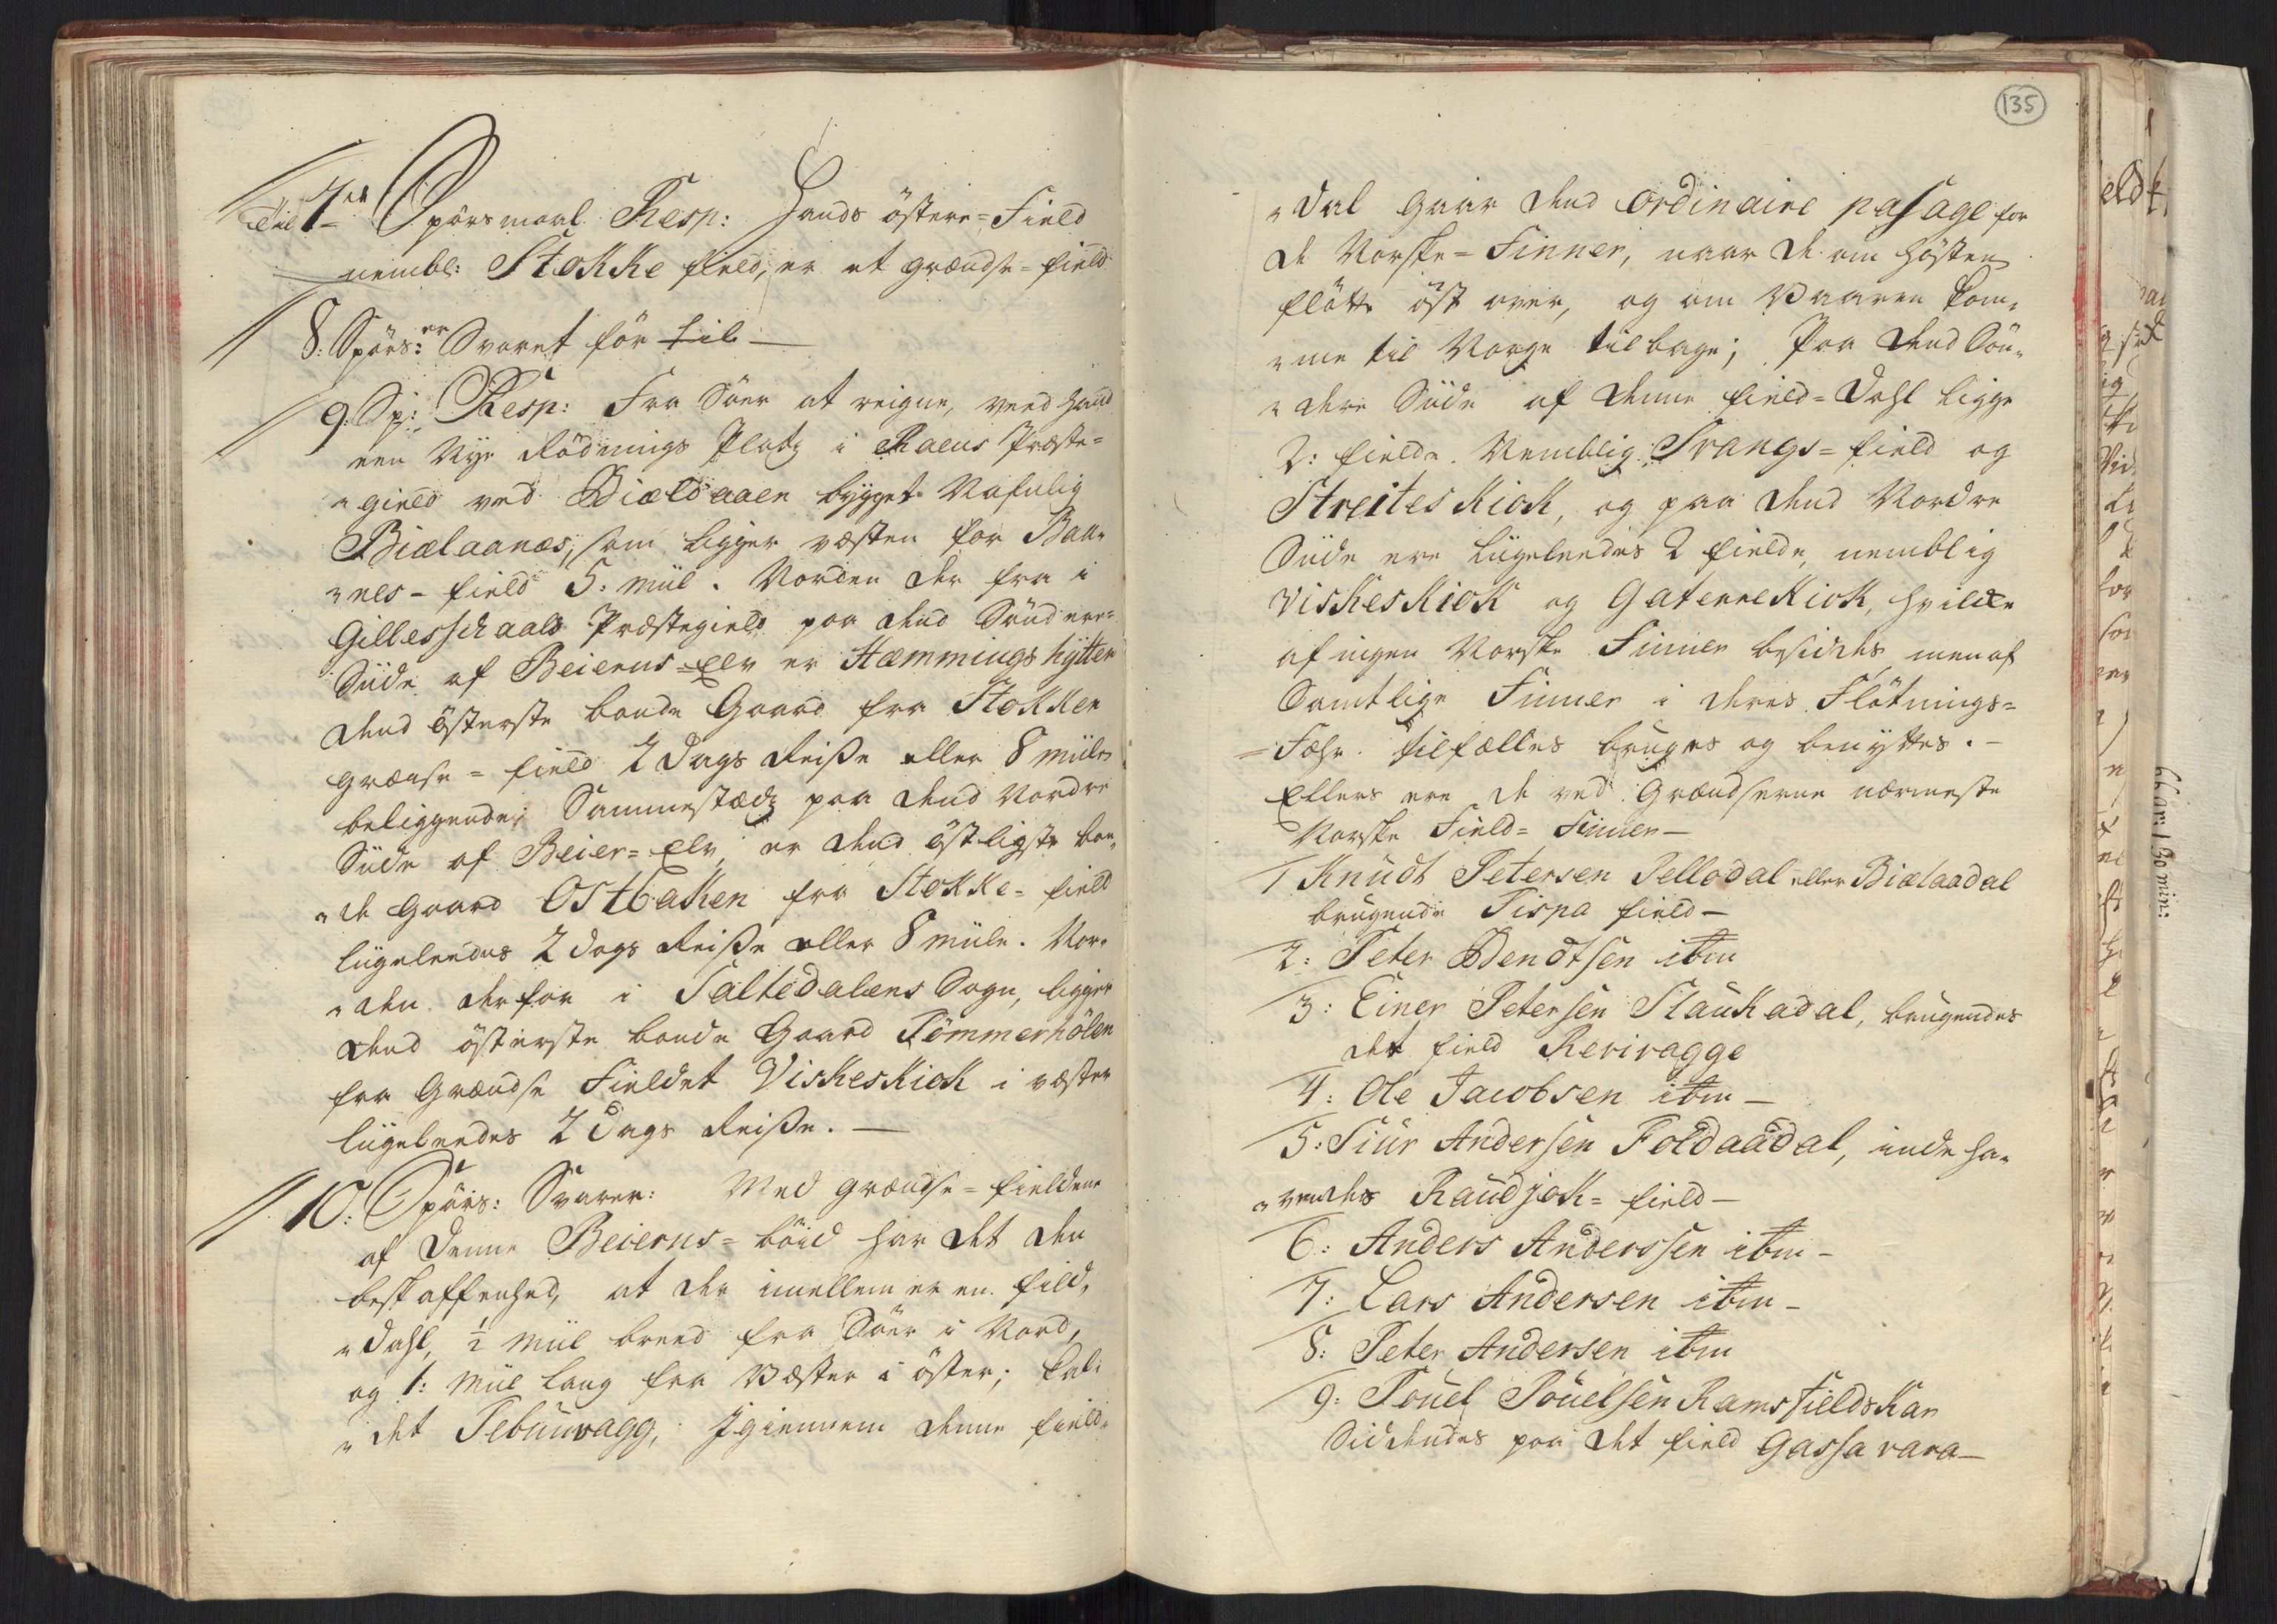 Til 7de Spörsmaal. Resp: Hands östere=Field
nembl: Stokke field, er et grændse=field
8: Spörs: er Svaret för til —
9. Sp: Resp: Fra Söer at reigne, veed Hand
een Nye Rödnings Platz i Raens Præste=
"gield ved Biældaaen bygget. Nafnlig
Biælaanæs, som ligger væsten for Bau„
"nes=field 5: miil. Norden der fra i
Gillesschaals Præstegield paa dend Söndere=
Siide af Beierns=Elv er Stæmmings hÿtten
dend Österste bonde Gaard fra Stokken
grænse=field 2 Dags Reiße eller 8 miile
beliggende; Sammestædz paa dend Nordre
Siide af Beier=Elv, er dend östligste bon„
"de Gaard Ostbaken fra Stokke=field
liigeleedes 2 dags Reiße eller 8 miile. Nor„
"den derfor i Saltedalens Sogn, ligger
dend österste bonde Gaard Tömmerhölen
fra Grændse Fieldet Viskeskiok i væster
liigeleedes 2 Dags Reiße. —
10. Spörs: Svarer: Ved grændse=fieldene
af denne Beierns=böid har det den
beskaffenhed, at der imellem er en field„
"Dahl, ½ Miil breed fra Söer i Nord,
og 1: Miil lang fra Væster i öster; kal„
"det Tebunvagg, Igiennem denne field„
135
"dal gaar dend ordinaire pasage for
de Norske=Finner, naar de om hösten
flötte öst over, og om Vaaren kom„
"me til Norge tilbage; Paa dend Sön„
"dere Siide af denne field=Dahl ligge
2: fielde. Nemblig: Srangs=field og
Streites Kiok, og paa dend Nordre
Siide ere liigeleedes 2 fielde, nemblig
Viskeskiok og Gaterre Kiok, hvilke
af ingen Norske Finner besiddes men af
Samtlige Finner i deres Flötnings=
=Fæhr. tilfælles bruges og benyttes. —
Ellers ere de ved Grændserne nærmeste
Norske Field=Finner —
1 Knudt Petersen Pellodal eller Biælaadal
brugende Tispa field —
2: Peter Bendtsen ibm
3: Einer Petersen Staukadal, brugendes
det field Rerivagge
4: Ole Jacobsen ibm —
5: Siur Andersen Foldaadal, inde ha„
"vendes Raudjok=field —
6: Anders Anderssen ibm —
7: Lars Andersen ibm —
8: Peter Andersen ibm
9: Pouel Pouelsen Ramsfieldskar
Siddendes paa det field Gassa vara —